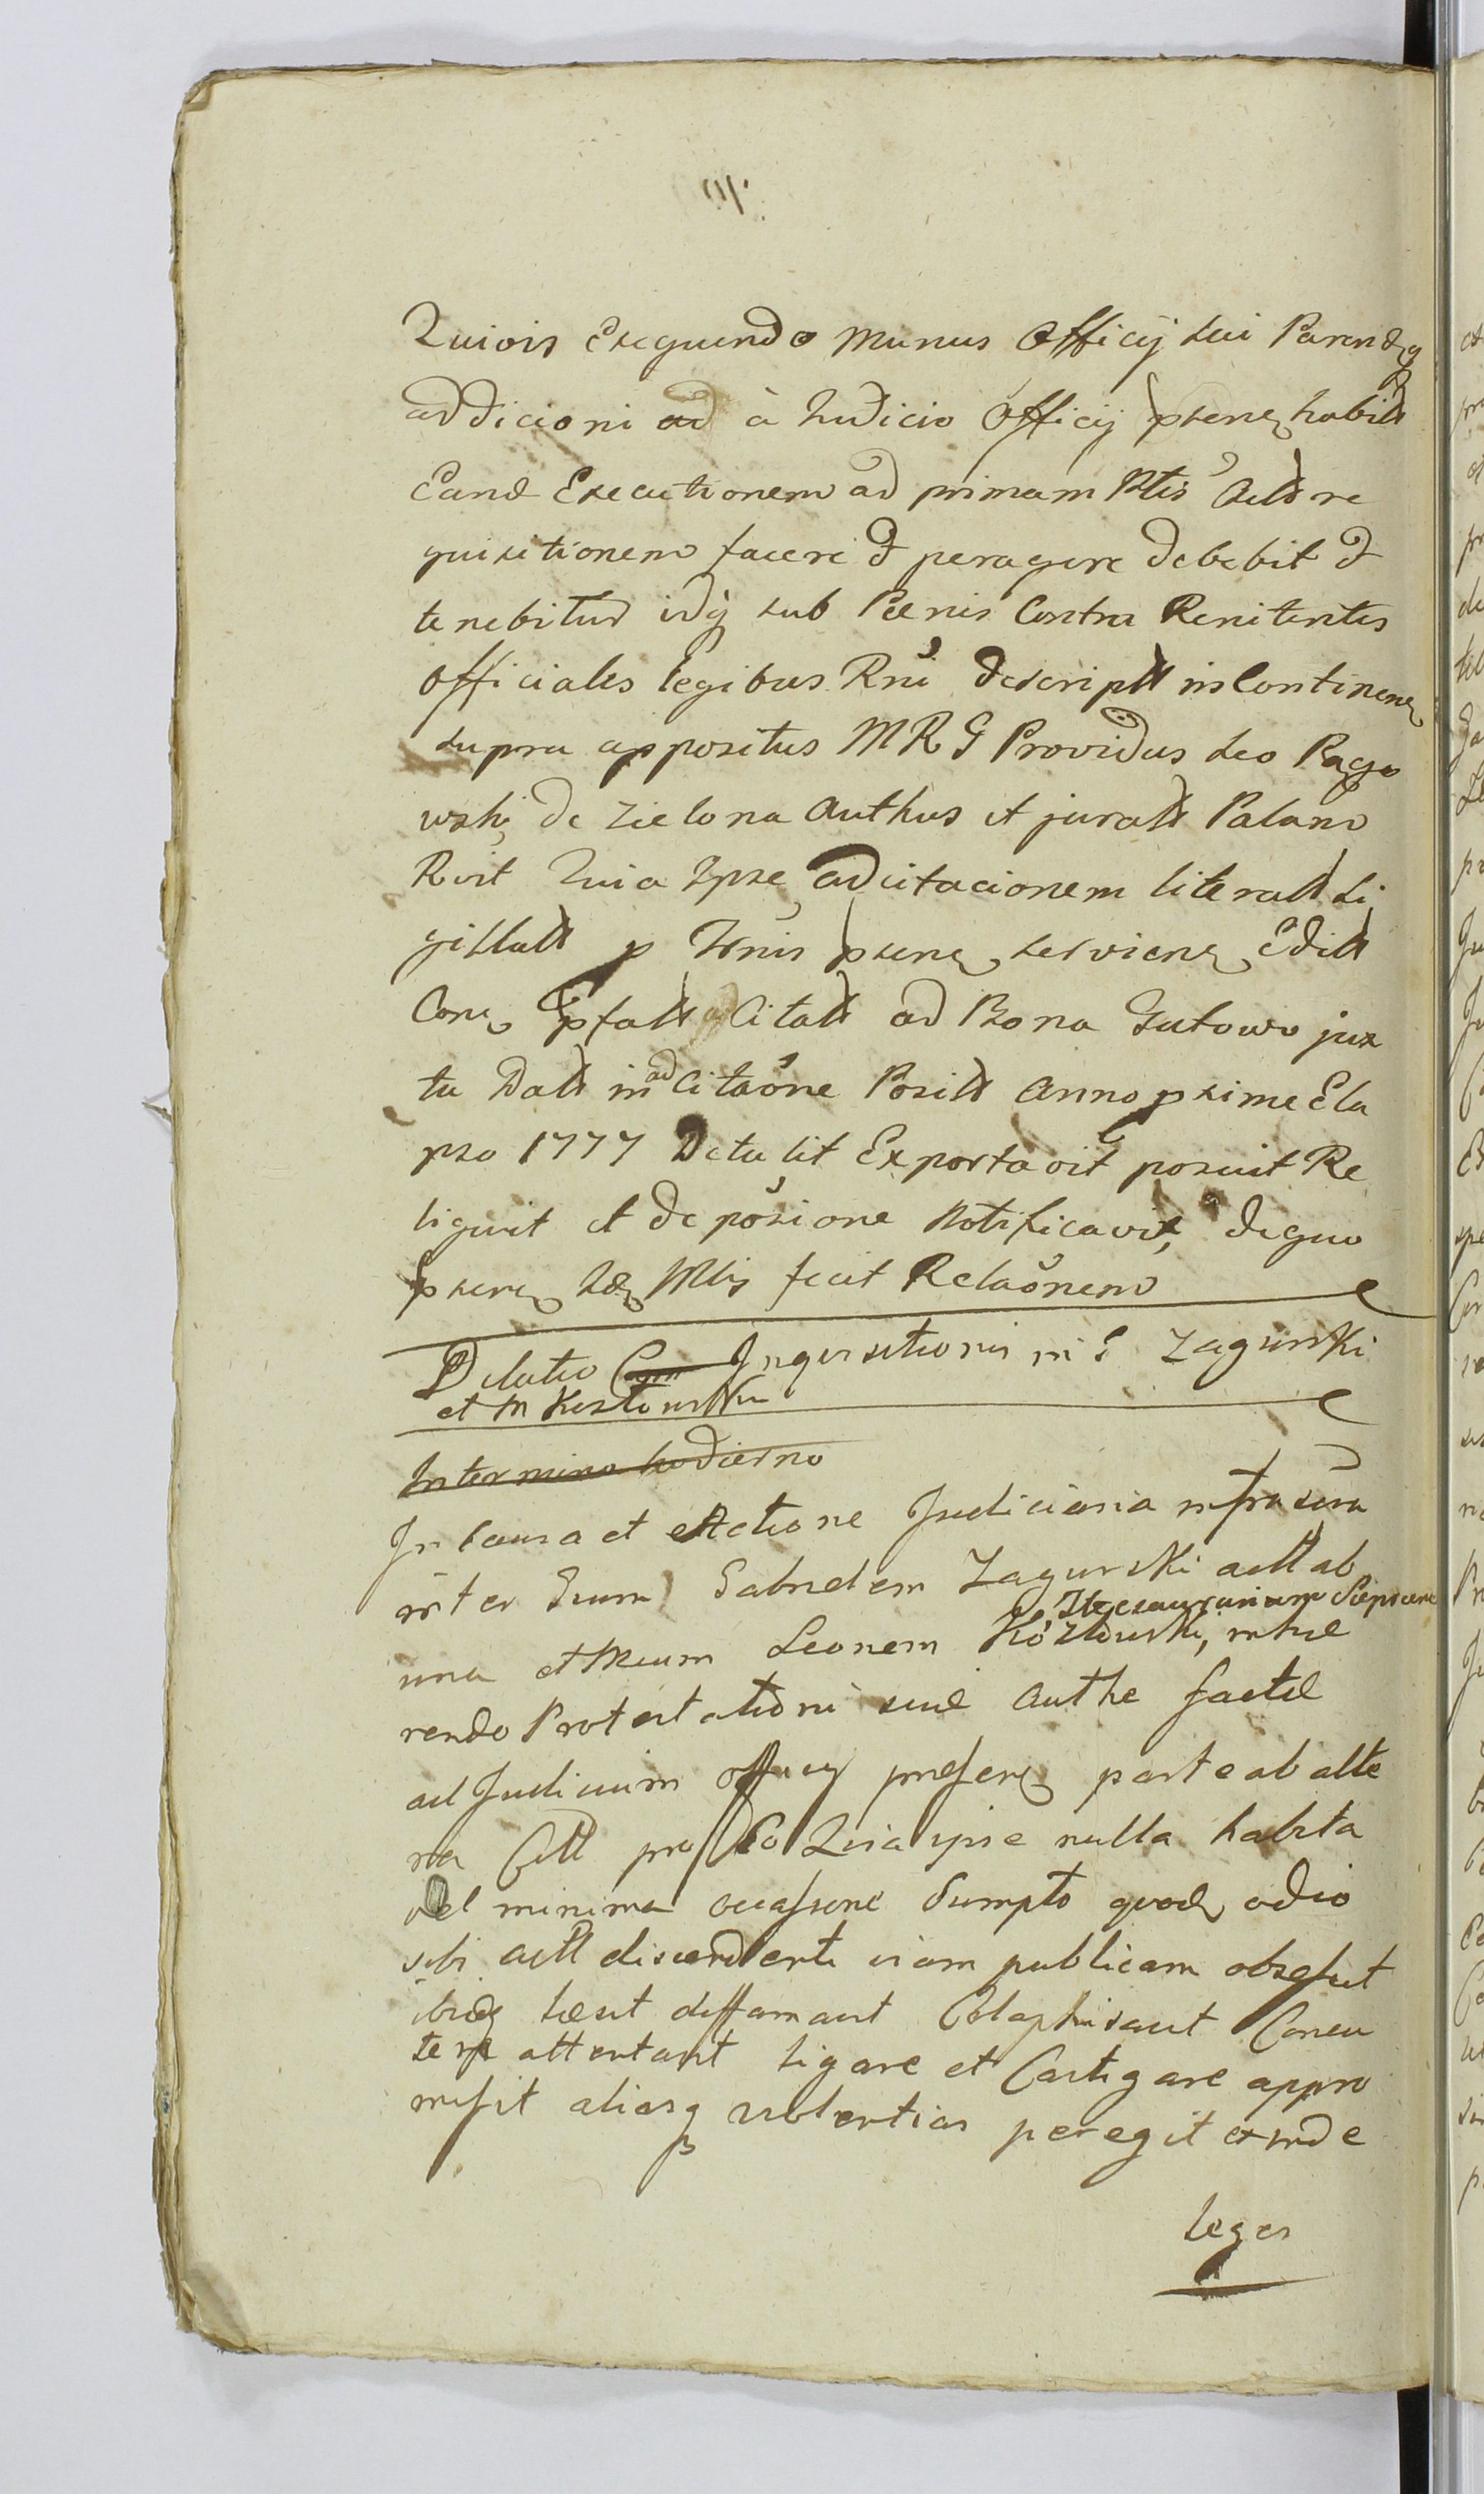 Quivis Exequendo Munus Officij sui Parendoq
addicioni ad à Judicio Officij psenz habitt
Eand Executionem ad primam Ptis Actt re
quisitionem facere & peragere debebit &
tenebitur idq sub Pœnis Contra Renitentes
Officiales legibus Rni descriptt in Continenz
supra appositus MRG Providus Leo Rago
wski de Zielona authus et juratt Palam
Rvit Quia Ipse adcitacionem literatt si
gillatt p Tmis psenz servienz Editt
Conz pfatt Citatt ad Bona Gutowo jux
ta Datt in ad Citaone Positt anno pxime Ela
pso 1777 Detulit Exportavit posuit Re
liquit et de posione Notificavit, de quo
psenz sz Mtis fecit Relaonem
Dilatio Cum Inquisitionis in G Zagurski
et M Kozlowski
In termino hodierno
In Causa et Actione Judiciaria infrascra
inter Grum Gabrielem Zagurski actt ab
Thesaurarium Sieprcens
una et Mcum Leonem Kozlowski, inhæ
rendo Protestationi suæ authe factæ
ad Judicium officij presenz parte ab alte
ra Citt pro Eo Quia ipse nulla habita
vel minima occasione Sumpto quodz odio
sibi actt discedenti viam publicam obsesut
ibidz læsit diffamavit Colaphisavit Concu
tere attentavit ligare et Castigare appro
misit aliasq violentias peregit exinde
leges